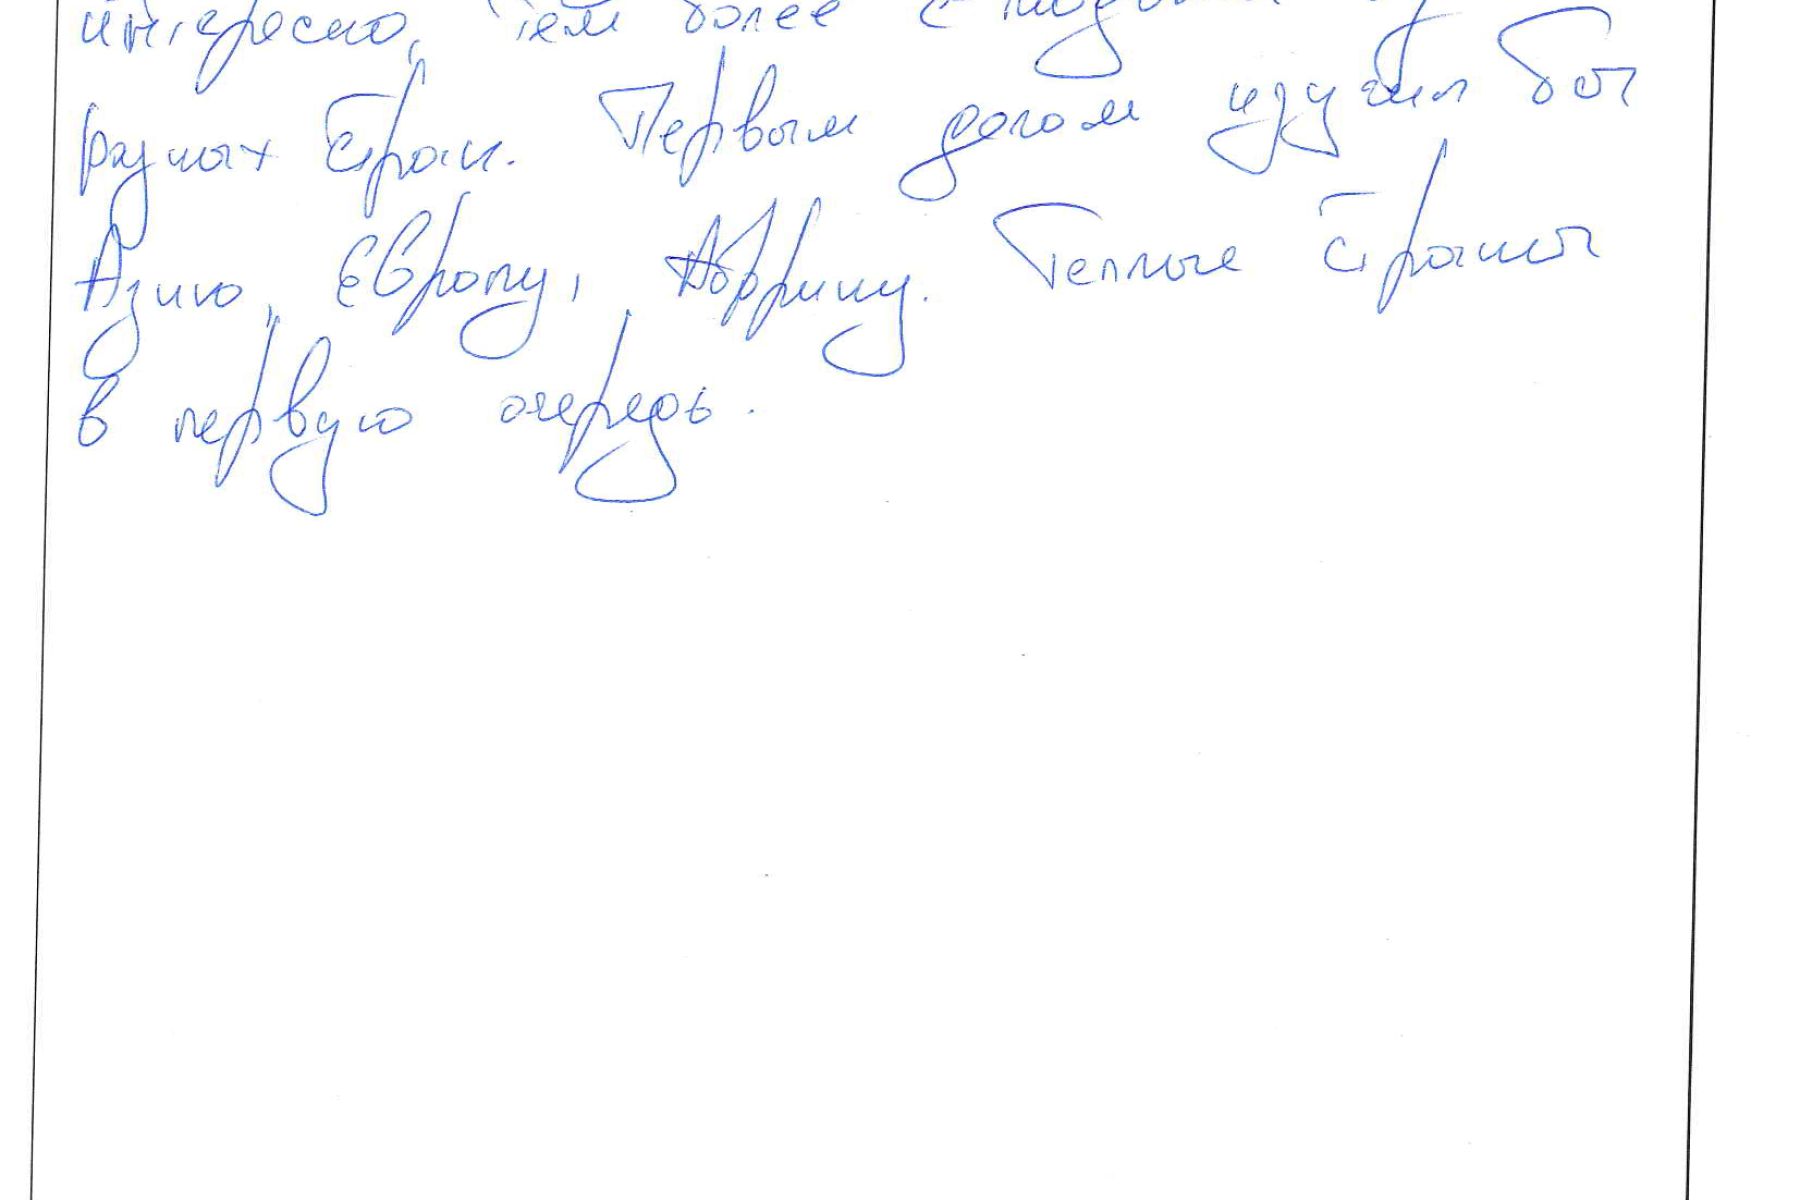 интересно, тем более с людьми
разных стран. Первым делом изучил бы
Азию, Европу, Африку. Теплые страны
в первую очередь.